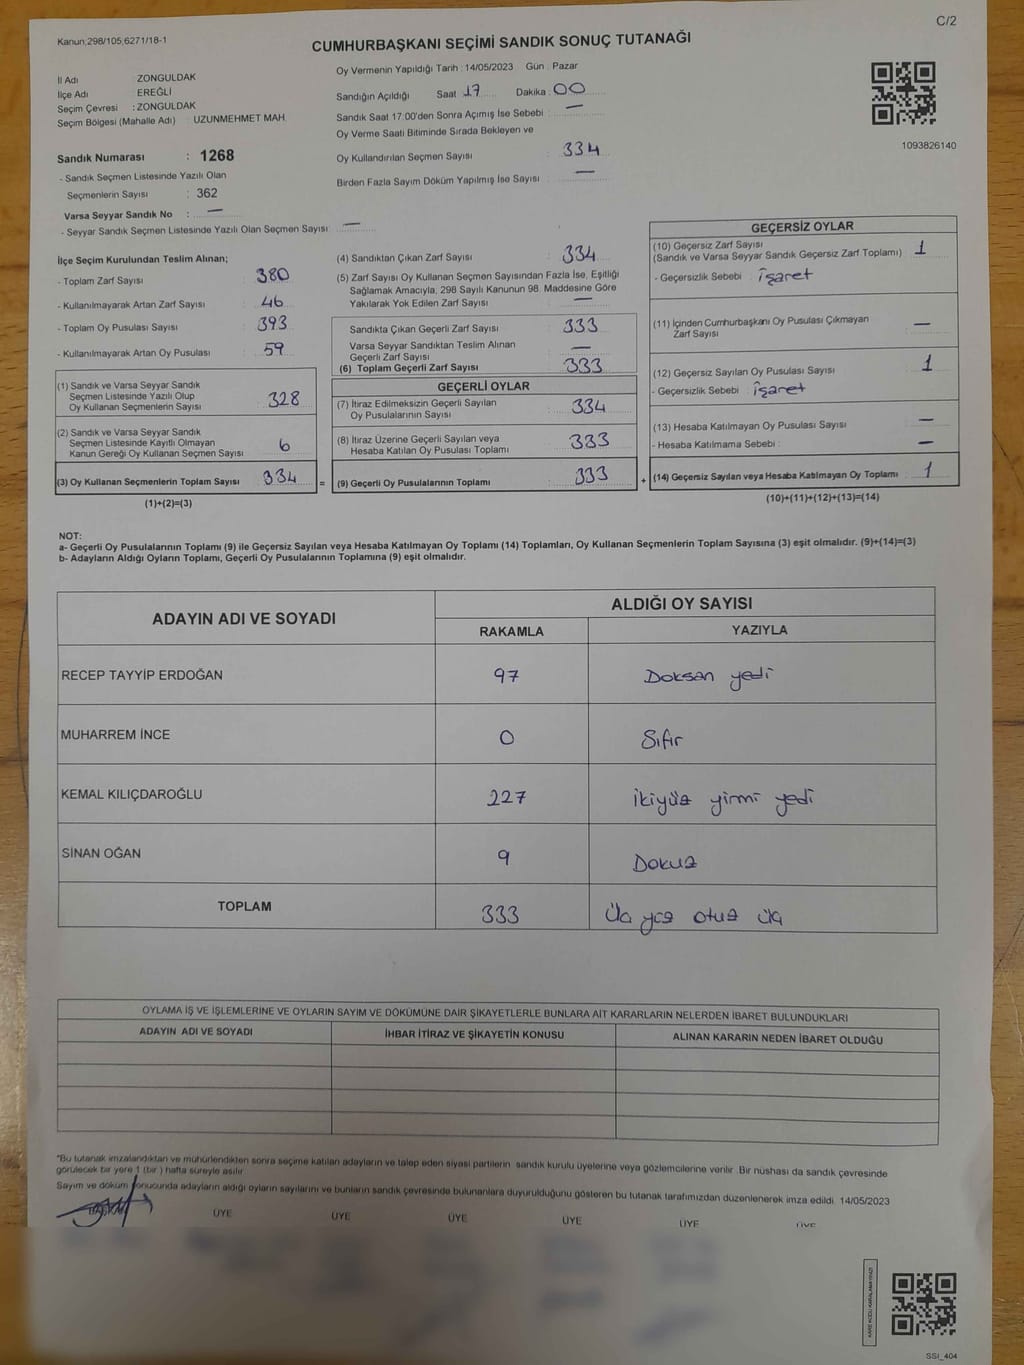 C/2
Kanun;298/105;6271/18-1
CUMHURBAŞKANI SEÇİMİ SANDIK SONUÇ TUTANAĞI
İl Adı : ZONGULDAK
İlçe Adı : EREĞLİ
Seçim Çevresi : ZONGULDAK
Seçim Bölgesi (Mahalle Adı) : UZUNMEHMET MAH.
Sandık Numarası : 1268
- Sandık Seçmen Listesinde Yazılı Olan
Seçmenlerin Sayısı : 362
Varsa Seyyar Sandık No : —
- Seyyar Sandık Seçmen Listesinde Yazılı Olan Seçmen Sayısı : —
Oy Vermenin Yapıldığı Tarih : 14/05/2023 Gün : Pazar
Sandığın Açıldığı Saat : 17 Dakika : 00
Sandık Saat 17:00'den Sonra Açımış İse Sebebi : —
Oy Verme Saati Bitiminde Sırada Bekleyen ve
Oy Kullandırılan Seçmen Sayısı : 334
Birden Fazla Sayım Döküm Yapılmış İse Sayısı : —
1093826140
İlçe Seçim Kurulundan Teslim Alınan;
- Toplam Zarf Sayısı : 380
- Kullanılmayarak Artan Zarf Sayısı : 46
- Toplam Oy Pusulası Sayısı : 393
- Kullanılmayarak Artan Oy Pusulası : 59
(1) Sandık ve Varsa Seyyar Sandık
Seçmen Listesinde Yazılı Olup
Oy Kullanan Seçmenlerin Sayısı : 328
(2) Sandık ve Varsa Seyyar Sandık
Seçmen Listesinde Kayıtlı Olmayan
Kanun Gereği Oy Kullanan Seçmen Sayısı : 6
(3) Oy Kullanan Seçmenlerin Toplam Sayısı : 334
(1)+(2)=(3)
=
(4) Sandıktan Çıkan Zarf Sayısı : 334
(5) Zarf Sayısı Oy Kullanan Seçmen Sayısından Fazla İse, Eşitliği
Sağlamak Amacıyla, 298 Sayılı Kanunun 98. Maddesine Göre
Yakılarak Yok Edilen Zarf Sayısı : —
Sandıkta Çıkan Geçerli Zarf Sayısı : 333
Varsa Seyyar Sandıktan Teslim Alınan
Geçerli Zarf Sayısı : —
(6) Toplam Geçerli Zarf Sayısı : 333
GEÇERLİ OYLAR
(7) İtiraz Edilmeksizin Geçerli Sayılan
Oy Pusulalarının Sayısı : 334
(8) İtiraz Üzerine Geçerli Sayılan veya
Hesaba Katılan Oy Pusulası Toplamı : 333
(9) Geçerli Oy Pusulalarının Toplamı : 333
+
GEÇERSİZ OYLAR
(10) Geçersiz Zarf Sayısı
(Sandık ve Varsa Seyyar Sandık Geçersiz Zarf Toplamı) : 1
- Geçersizlik Sebebi : İşaret
(11) İçinden Cumhurbaşkanı Oy Pusulası Çıkmayan
Zarf Sayısı : —
(12) Geçersiz Sayılan Oy Pusulası Sayısı : 1
- Geçersizlik Sebebi : İşaret
(13) Hesaba Katılmayan Oy Pusulası Sayısı : —
- Hesaba Katılmama Sebebi : —
(14) Geçersiz Sayılan veya Hesaba Katılmayan Oy Toplamı : 1
(10)+(11)+(12)+(13)=(14)
NOT:
a- Geçerli Oy Pusulalarının Toplamı (9) ile Geçersiz Sayılan veya Hesaba Katılmayan Oy Toplamı (14) Toplamları, Oy Kullanan Seçmenlerin Toplam Sayısına (3) eşit olmalıdır. (9)+(14)=(3)
b- Adayların Aldığı Oyların Toplamı, Geçerli Oy Pusulalarının Toplamına (9) eşit olmalıdır.
ADAYIN ADI VE SOYADI ALDIĞI OY SAYISI
RAKAMLA YAZIYLA
RECEP TAYYİP ERDOĞAN 97 Doksan yedi
MUHARREM İNCE 0 Sıfır
KEMAL KILIÇDAROĞLU 227 ikiyüz yirmi yedi
SİNAN OĞAN 9 Dokuz
TOPLAM 333 Üç yüz otuz üç
OYLAMA İŞ VE İŞLEMLERİNE VE OYLARIN SAYIM VE DÖKÜMÜNE DAİR ŞİKAYETLERLE BUNLARA AİT KARARLARIN NELERDEN İBARET BULUNDUKLARI
ADAYIN ADI VE SOYADI İHBAR İTİRAZ VE ŞİKAYETİN KONUSU ALINAN KARARIN NEDEN İBARET OLDUĞU
"Bu tutanak imzalandıktan ve mühürlendikten sonra seçime katılan adayların ve talep eden siyasi partilerin sandık kurulu üyelerine veya gözlemcilerine verilir. Bir nüshası da sandık çevresinde
görülecek bir yere 1 (bir ) hafta süreyle asılır
Sayım ve döküm sonucunda adayların aldığı oyların sayılarını ve bunların sandık çevresinde bulunanlara duyurulduğunu gösteren bu tutanak tarafımızdan düzenlenerek imza edildi. 14/05/2023
BAŞKAN ÜYE ÜYE ÜYE ÜYE ÜYE ÜYE
KARE KODU KARALAMAYINIZ!
SSI_404